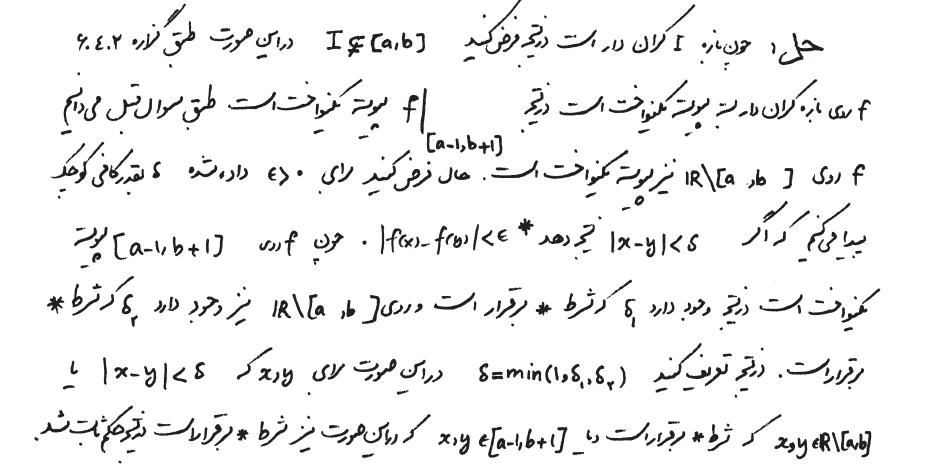 حل: چون بازه I کران دار است در نتیجه فرض کنید I ⊊ [a,b] در این صورت طبق گزاره ۶.۴.۲
f روی بازه کران دار بسته پیوسته یکنواخت است در نتیجه f|[a-1,b+1] پیوسته یکنواخت است. طبق سوال قبل می‌دانیم
f روی ℝ\[a,b] نیز پیوسته یکنواخت است. حال فرض کنید برای ε>۰ داده شده δ بقدر کافی کوچک
پیدا می‌کنیم که اگر |x-y|<δ نتیجه دهد |f(x)-f(y)|<ε *. چون f روی [a-1,b+1] پیوسته
یکنواخت است در نتیجه وجود دارد δ₁ که شرط * برقرار است و روی ℝ\[a,b] نیز وجود دارد δ₂ که شرط *
برقرار است. در نتیجه تعریف کنید δ=min(1,δ₁,δ₂) در این صورت برای x,y که |x-y|<δ یا
x,y∈ℝ\[a,b] که شرط * برقرار است و یا x,y∈[a-1,b+1] که در این صورت نیز شرط * برقرار است در نتیجه حکم ثابت شد.